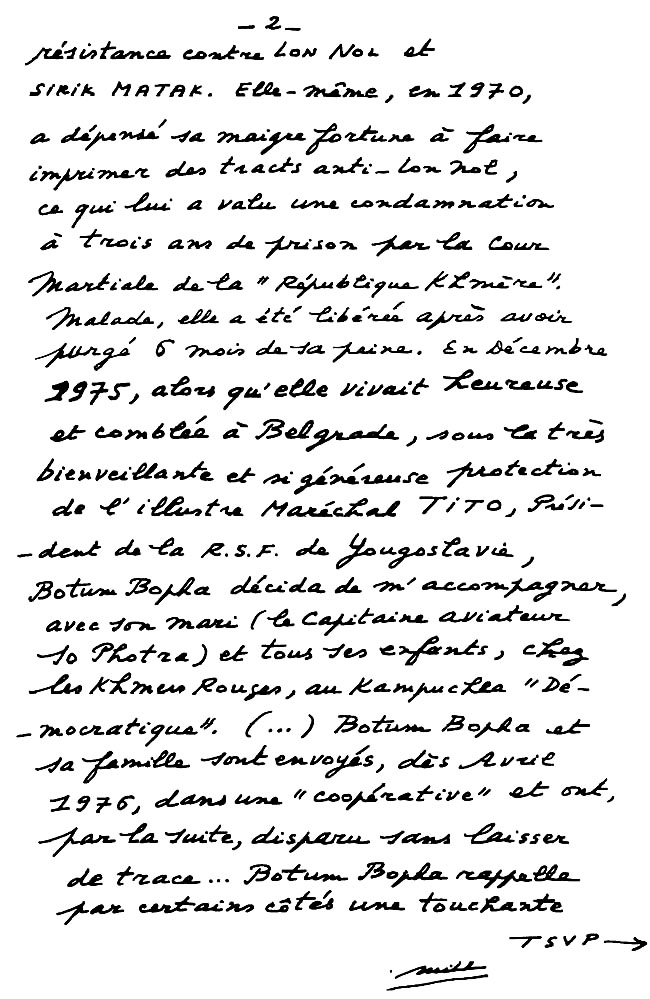 - 2 -
résistance contre LON NOL et
SIRIK MATAK. Elle-même, en 1970,
a dépensé sa maigre fortune à faire
imprimer des tracts anti-Lon Nol,
ce qui lui a valu une condamnation
à trois ans de prison par la Cour
Martiale de la "République Khmère".
Malade, elle a été libérée après avoir
purgé 6 mois de sa peine. En Décembre
1975, alors qu'elle vivait heureuse
et comblée à Belgrade, sous la très
bienveillante et si généreuse protection
de l'illustre Maréchal TITO, Prési-
-dent de la R.S.F. de Yougoslavie,
Botum Bopha décida de m'accompagner,
avec son mari (le Capitaine aviateur
So Photra) et tous ses enfants, chez
les Khmers Rouges, au Kampuchea "Dé-
-mocratique". (...) Botum Bopha et
sa famille sont envoyés, dès Avril
1976, dans une "coopérative" et ont,
par la suite, disparu sans laisser
de trace... Botum Bopha rappelle
par certains côtés une touchante
TSVP →